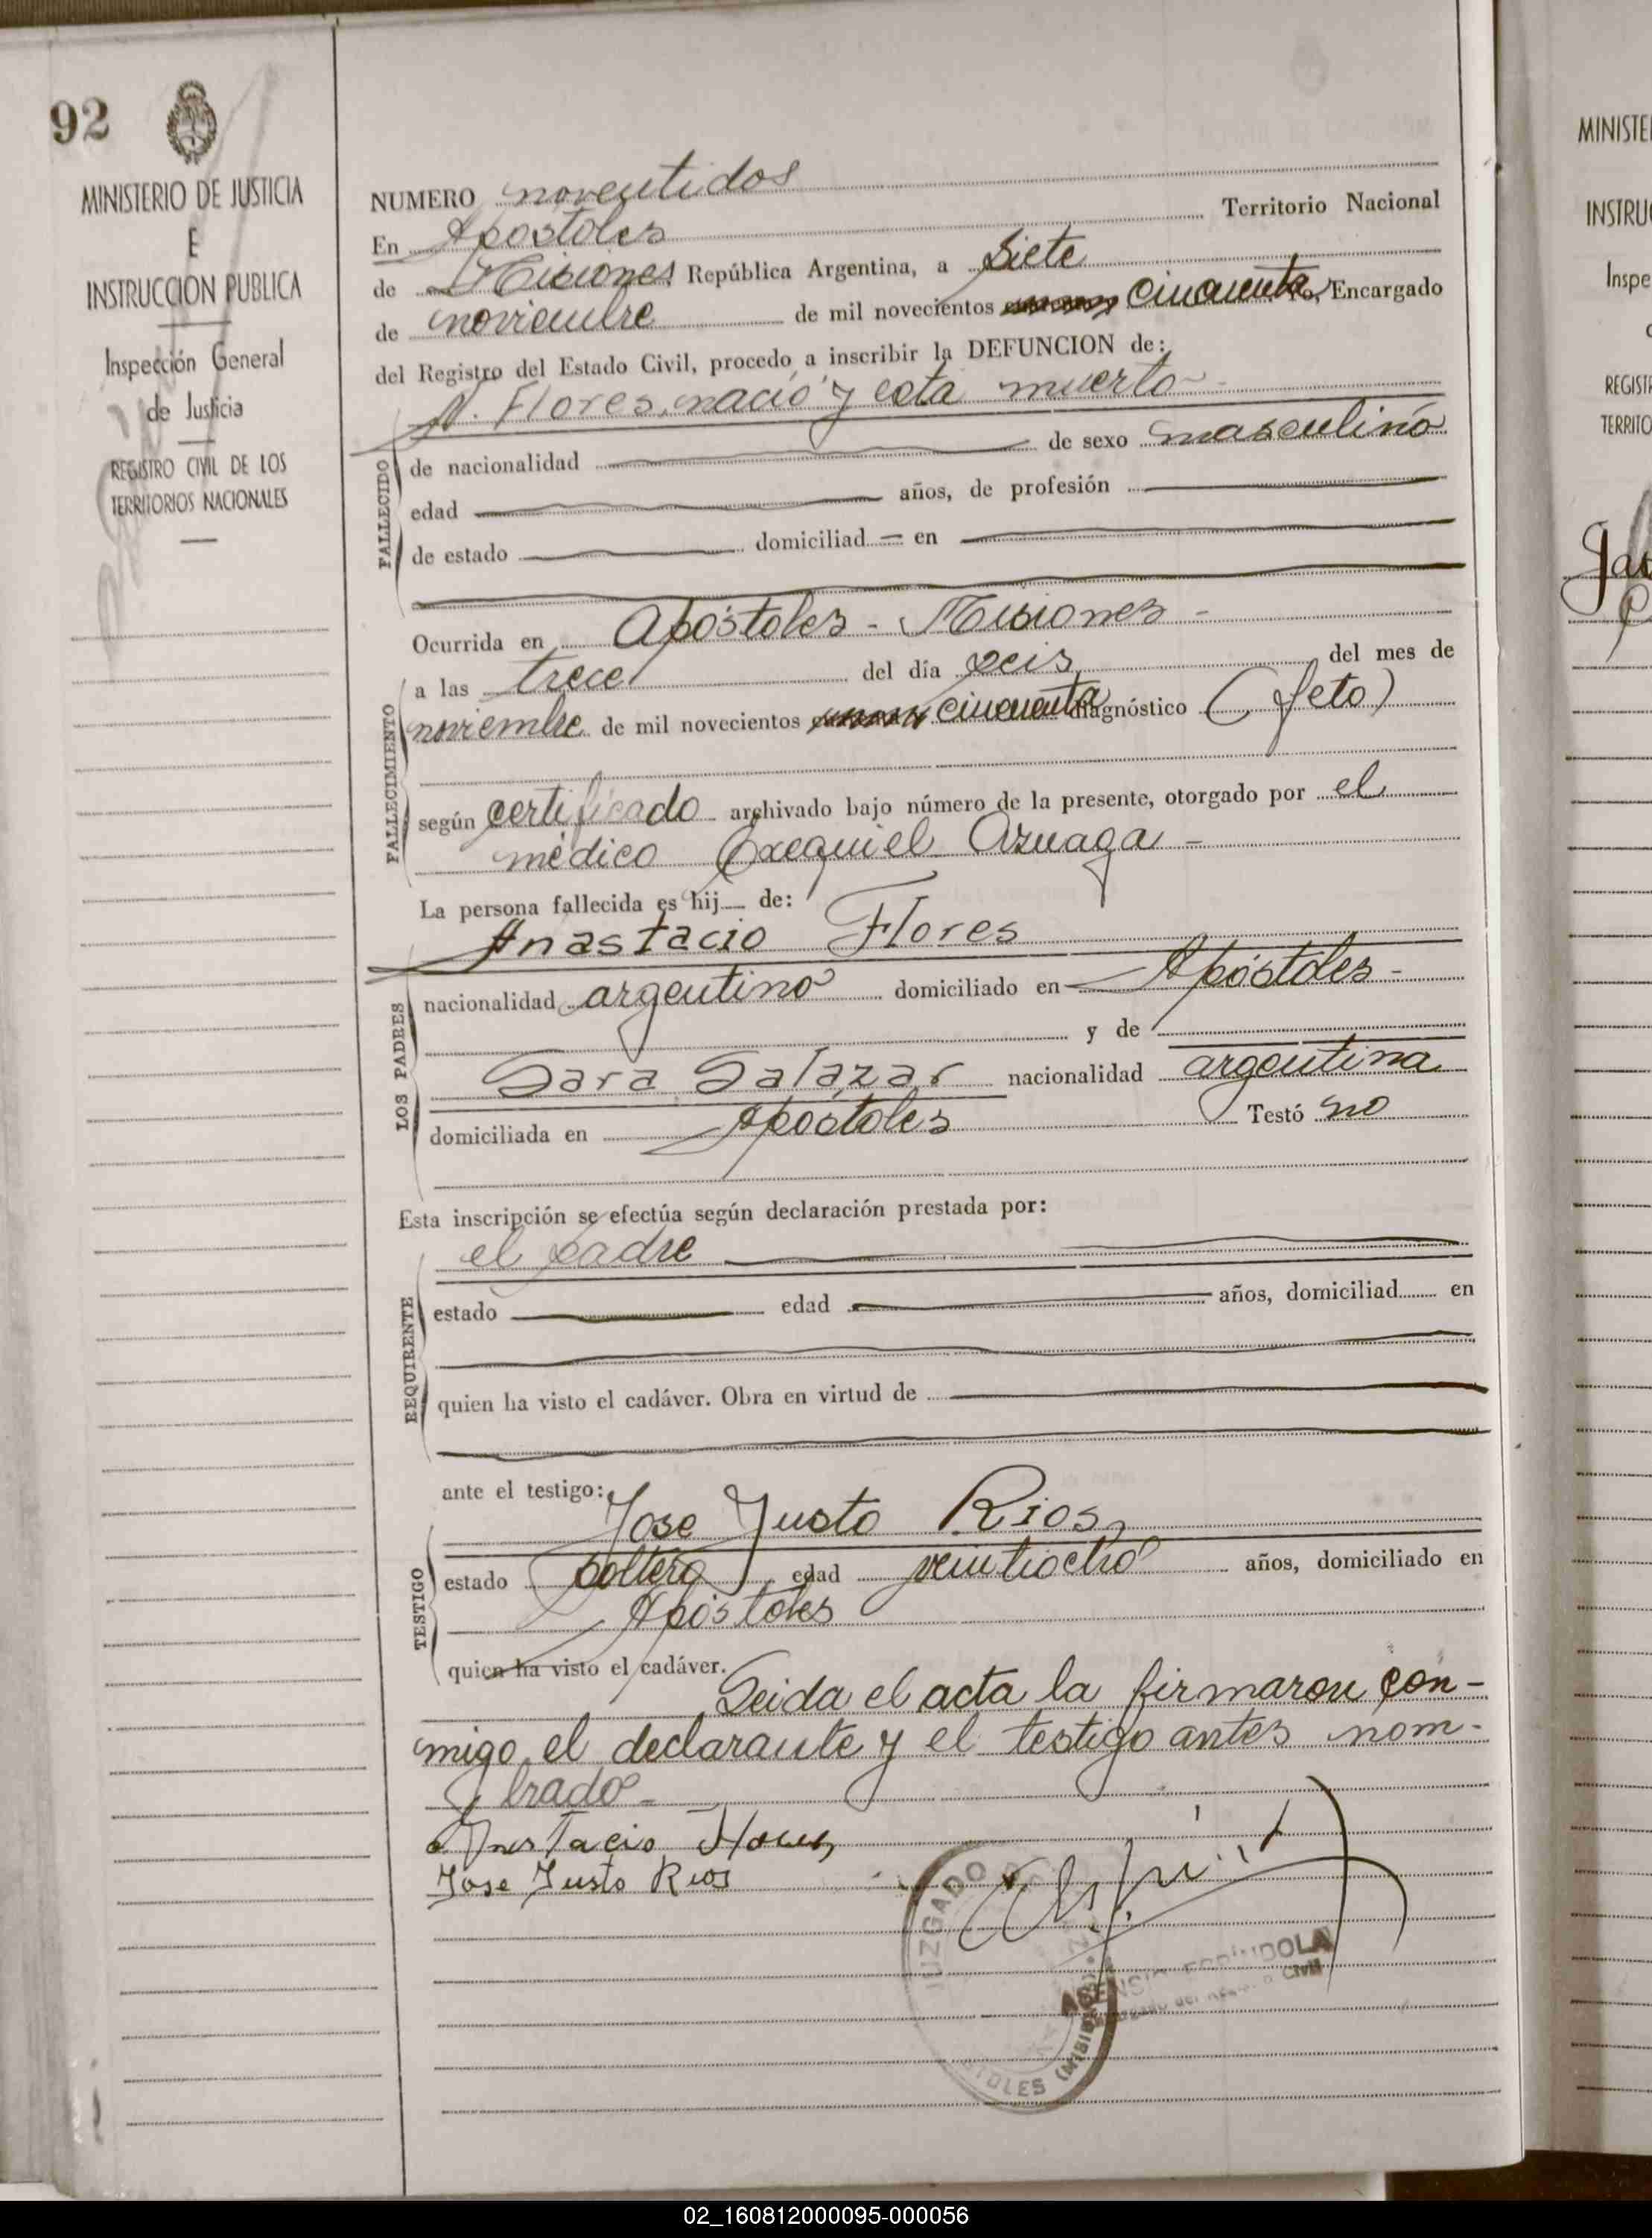 92
MINISTERIO DE JUSTICIA
E
INSTRUCCION PUBLICA
Inspección General
de Justicia
REGISTRO CIVIL DE LOS
TERRITORIOS NACIONALES
NUMERO noventidos
En Apóstoles Territorio Nacional
de Misiones República Argentina, a Siete
de noviembre de mil novecientos cincuenta Yo, Encargado
del Registro del Estado Civil, procedo a inscribir la DEFUNCION de:
N. Flores, nació y esta muerto
FALLECIDO
de nacionalidad de sexo masculino
edad años, de profesión
de estado domiciliad en
Ocurrida en Apóstoles - Misiones -
FALLECIMIENTO
a las trece del día seis del mes de
noviembre de mil novecientos cincuenta diagnóstico (feto)
según certificado archivado bajo número de la presente, otorgado por el
médico Exequiel Azuaga -
La persona fallecida es hij de:
LOS PADRES
Anastacio Flores
nacionalidad argentino domiciliado en Apóstoles -
y de
Sara Salazar nacionalidad argentina
domiciliada en Apóstoles Testó no
Esta inscripción se efectúa según declaración prestada por:
REQUIRENTE
el padre
estado edad años, domiciliad en
quien ha visto el cadáver. Obra en virtud de
ante el testigo:
TESTIGO
Jose Justo Rios
estado soltero edad veintiocho años, domiciliado en
Apóstoles
quien ha visto el cadáver.
Leida el acta la firmaron con-
migo el declarante y el testigo antes nom-
brado -
Anastacio Flores
Jose Justo Rios
JUZGADO
Civil
MINISTE
INSTRU
Inspe
REGIST
TERRITO
02_160812000095-000056